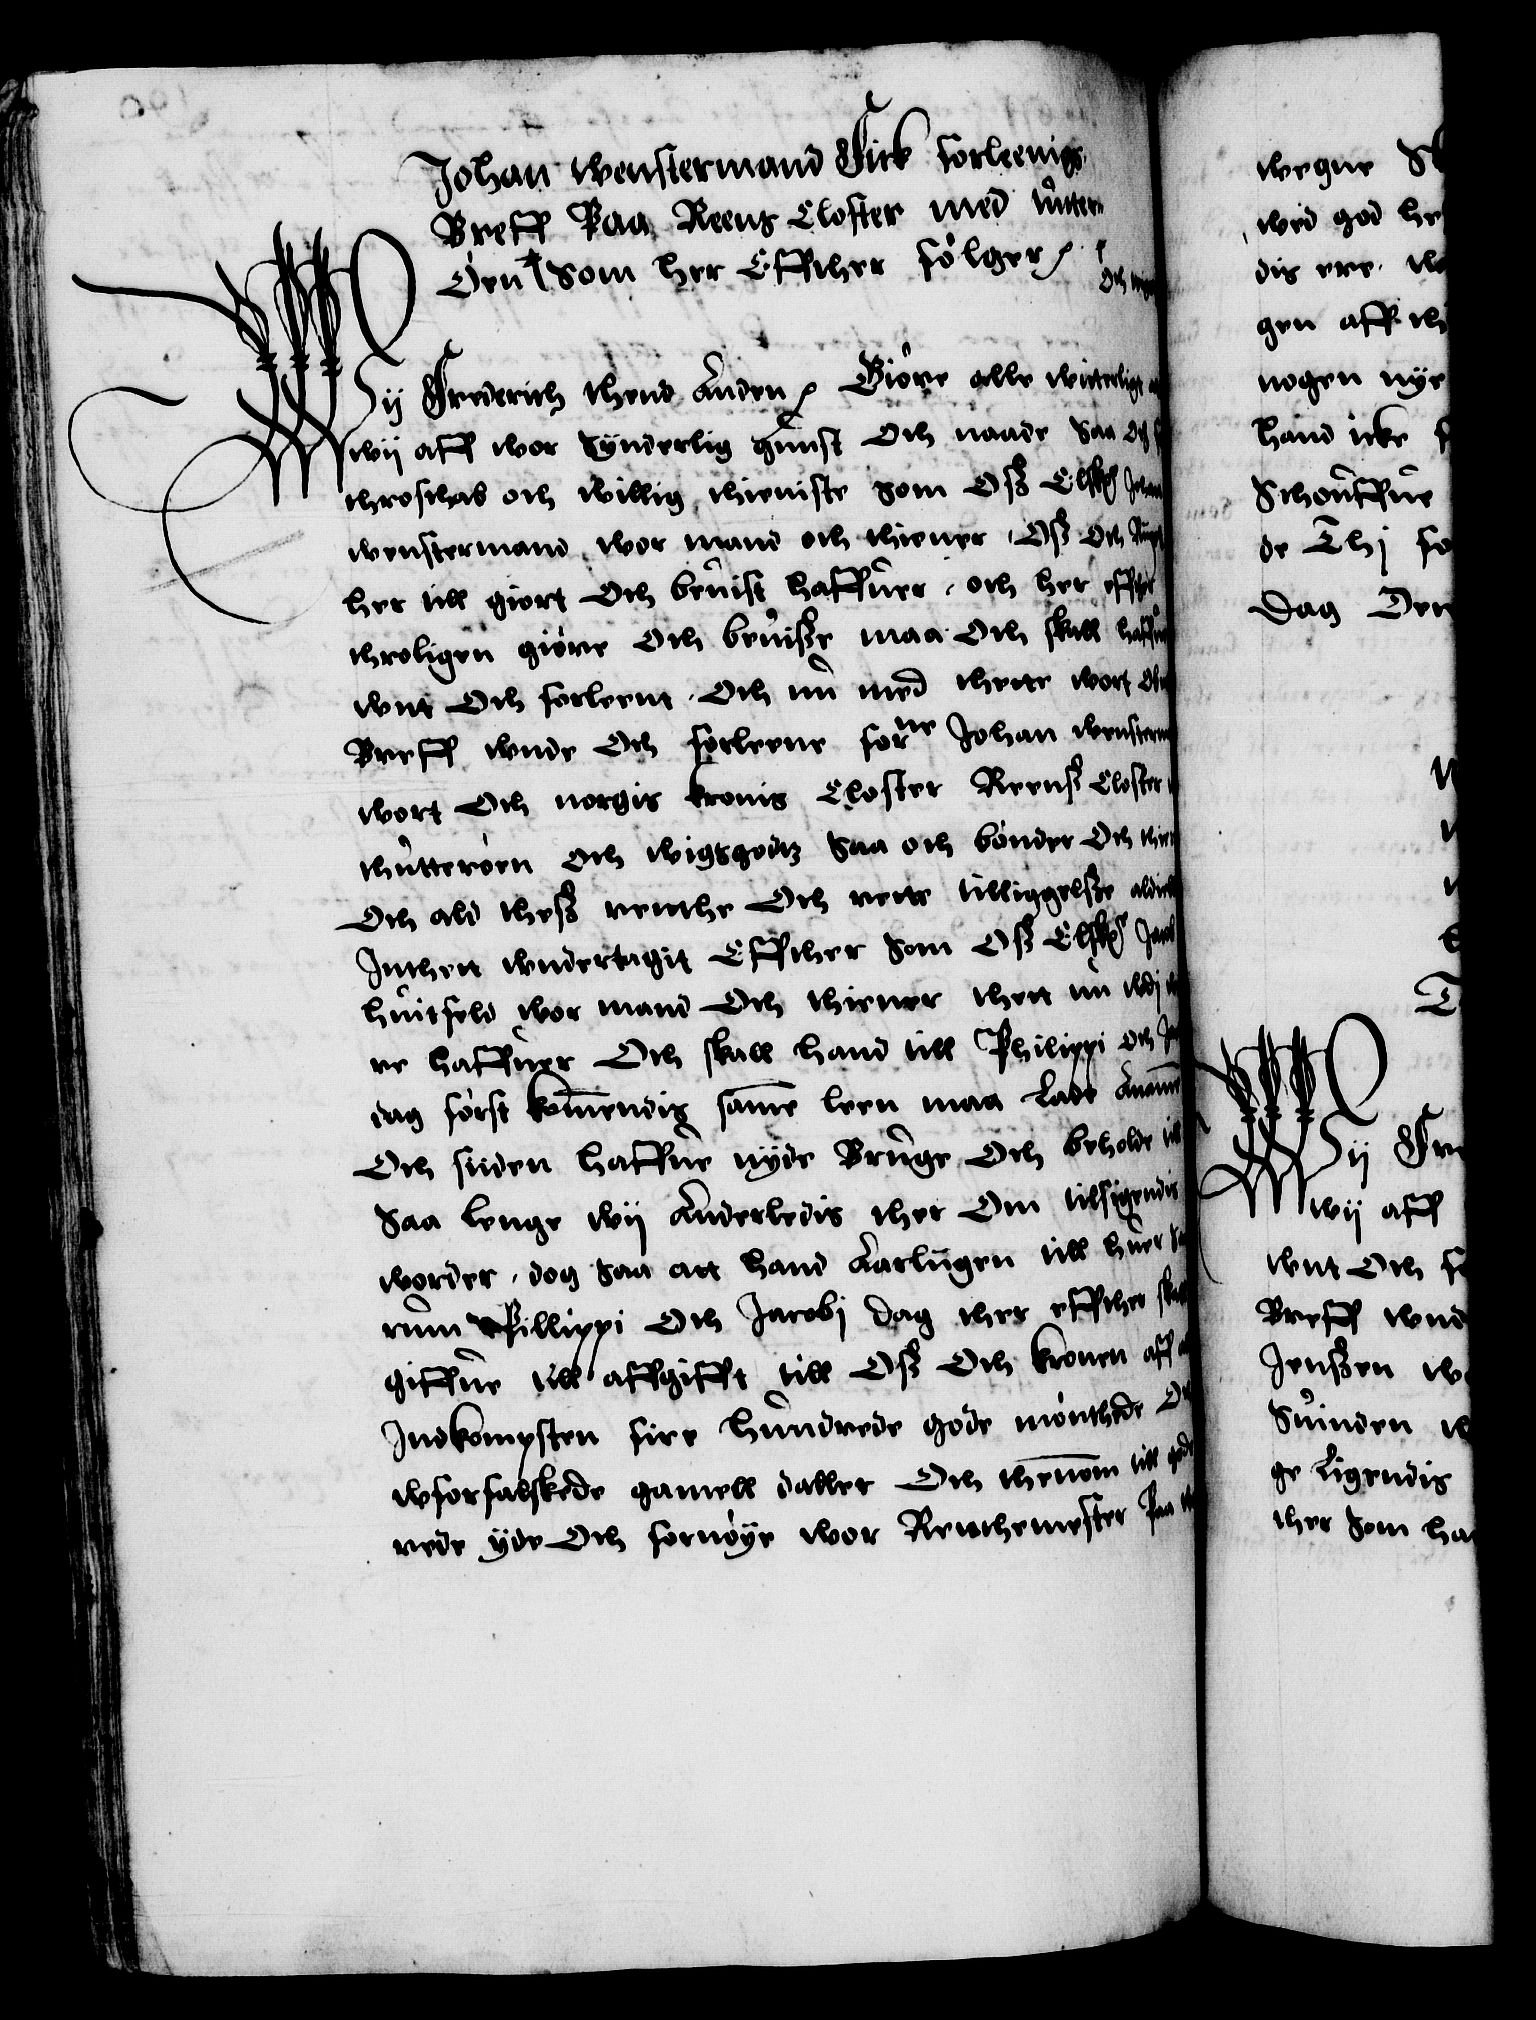 Johan wenstermand Fick forleenigs
Breff Paa Reens Closter med tutter
Øen som her Effther følger
Och
Wij Frederich thend Anden Giøre alle witterligt
wij aff wor synderlig gunst Och naade saa och
throskab och willig thieniste som Oss Elskel Johan
wenstermand wor mand och thiener Oss Och
her till giort Och beuist haffuer och her effter
throligen giøre Och beuisse maa Och skall haffue
wnt Och forleent Och nu med thette wort obne
Breff wnde Och forleene forne Johan wensterm
wort Och norgis kronis Closter Reenss Closter
thutterøen och wigsgodtz Saa och bønder Och thien
Och ald thess renthe Och rette tilliggelsse aldielis
Jnthet wndertagit Effther som Oss Elskel Jacob
huitfeld wor mand Och thiener thet nu wdj
re haffuer Och skall hand till Philippi och Ja
dag først komendis same leen maa Lade Anname
Och siiden haffue nyde Bruge Och beholde
saa lenge wij Anderledis ther Om tilsigendis
worder dog saa att hand Aarligen till huer
rum Pillippi Och Jacobj dag ther effther skall
giffue till affgifft till Oss Och kronen aff
Jndkompsten fire hundrede gode mønthede Och
wforfalskede gamell daller Och thenom till gode
rede yde Och fornøye wor Renthemester Paa
wegne
wed god
dis ere
gen aff
nogen nye
hand icke
Schouffue
de Thj
Dag
Wij Fre
wij aff
wnt Och
Breff wnd
Jenssen
Suinden
ge Ligendis
ther som